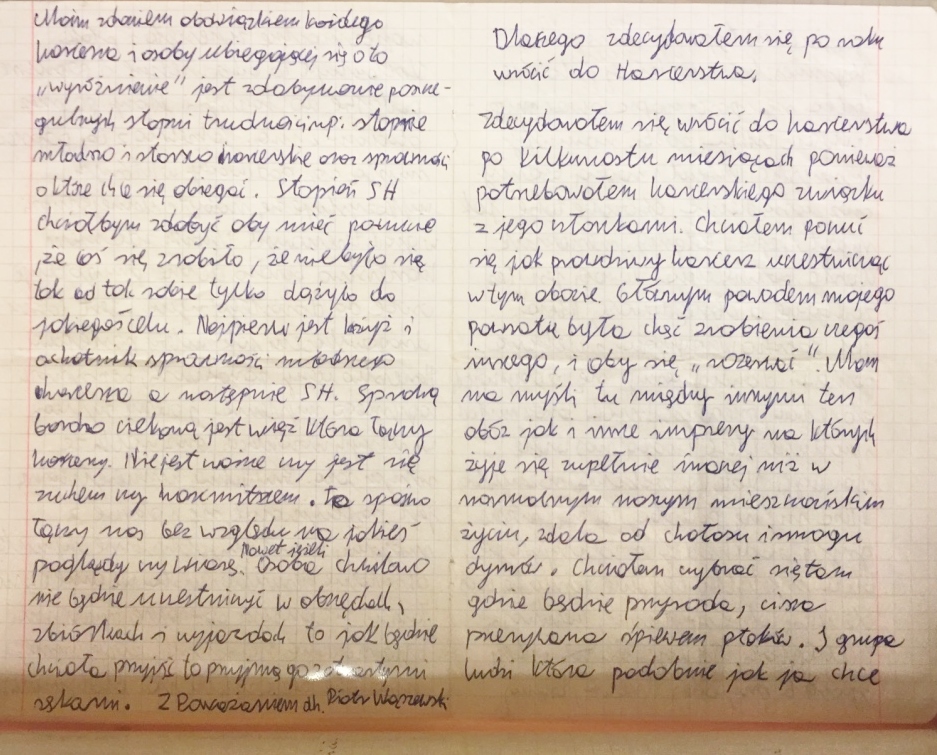 Moim zdaniem obowiązkiem każdego
harcerza i osoby ubiegającej się o to
„wyróżnienie" jest zdobywanie poszcze-
gulnych stopni trudności np. stopnie
młodzo i starszo harcerskie oraz sprawności
o które chce się obiegać. Stopień SH
chciałbym zdobyć aby mieć poczucie
, że coś się zrobiło, że nie było się
tak od tak sobie tylko dążyło do
jakiegoś celu. Najpierw jest krzyż i
ochotnik sprawności młodszego
harcerza a następnie SH. Sprawą
bardzo ciekawą jest więź która łączy
harcerzy. Nie jest ważne czy jest się
zuchem czy harcmistrzem. To spójno
łączy nas bez względu na jakieś
poglądy czy wiarę. Nawet jeżeli osoba chwilowo
nie będzie uczestniczyć w obrzędach,
zbiórkach i wyjazdach to jak będzie
chciała przyjść to przyjmą go z otwartymi
rękami. Z Poważaniem dh. Piotr Wąszewski
Dlaczego zdecydowałem się po roku
wrócić do Harcerstwa.
Zdecydowałem się wrócić do harcerstwa
po kilkunastu miesiącach ponieważ
potrzebowałem harcerskiego związku
z jego członkami. Chciałem poczuć
się jak prawdziwy harcerz uczestnicząc
w tym obozie. Głównym powodem mojego
powrotu była chęć zrobienia czegoś
innego, i aby się „rozerwać". Mam
na myśli tu między innymi ten
obóz jak i inne imprezy na których
żyje się zupełnie inaczej niż w
normalnym naszym mieszczańskim
życiu, zdala od chałasu i smogu
dymów. Chciałem wybrać się tam
gdzie będzie przyroda, cisza
przerywana śpiewem ptaków. I grupa
ludzi która podobnie jak ja chce